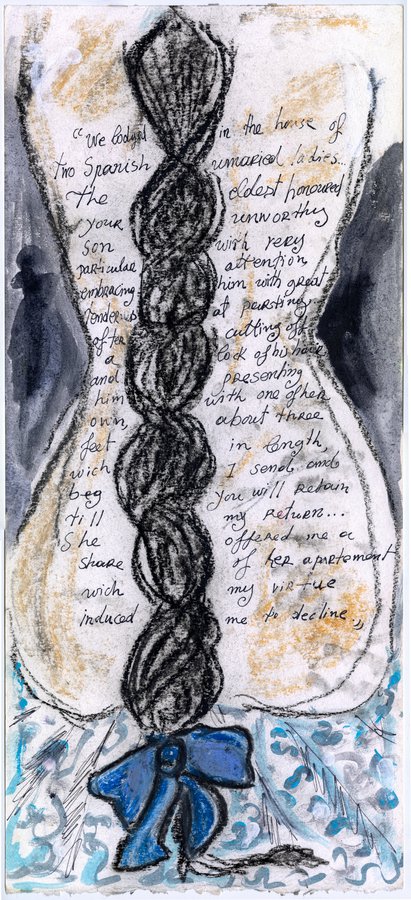 "We lodged in the house of
two Spanish unmaried ladies...
The eldest honoured
your unworthy
son with very
particular attention
embracing him with great
tenderness at parting,
after cutting off
a lock of his hair
and presenting
him with one of her
own about three
feet in length,
wich I send and
beg you will retain
till my return...
She offered me a
share of her apartement
wich my virtue
induced me to decline"